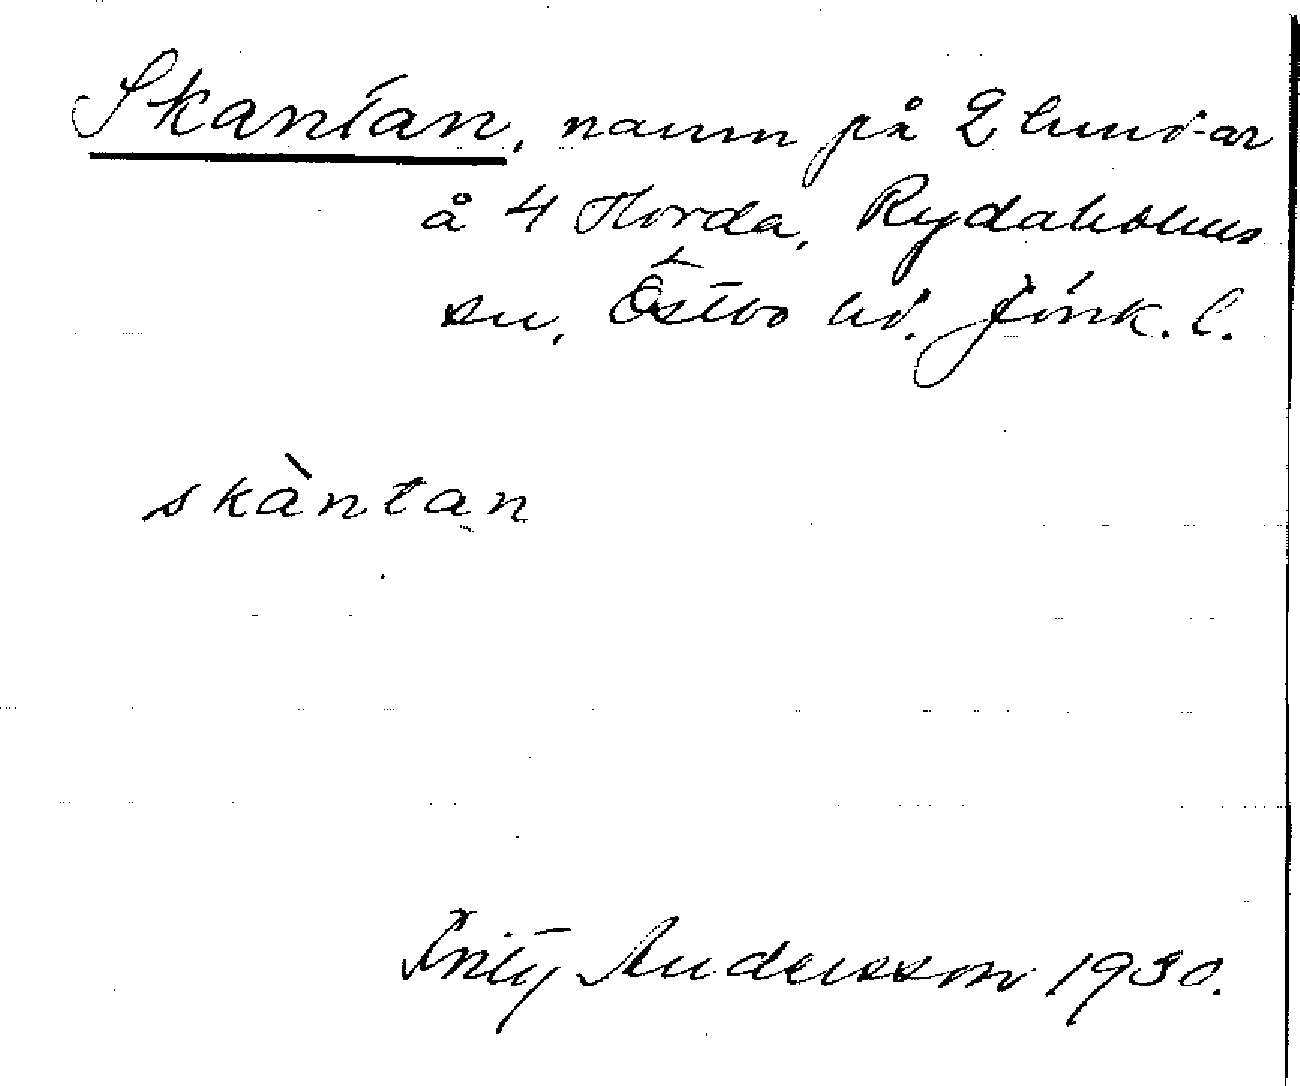 Skantan, namn på 2 hund-ar
å 4 Horda, Rydaholms
sn, Östbo hd. Jönk. l.
skàntan
Fritz Andersson 1930.